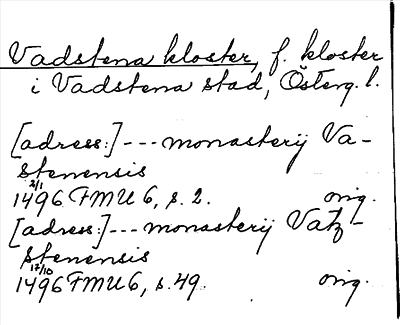 Vadstena kloster, f. kloster
i Vadstena stad, Österg. l.
[adress:] --- monasterij Va-
stenensis
2/1
1496 FMU 6, s. 2. orig.
[adress:] --- monasterij Vatz-
stenensis
17/10
1496 FMU 6, s. 49. orig.